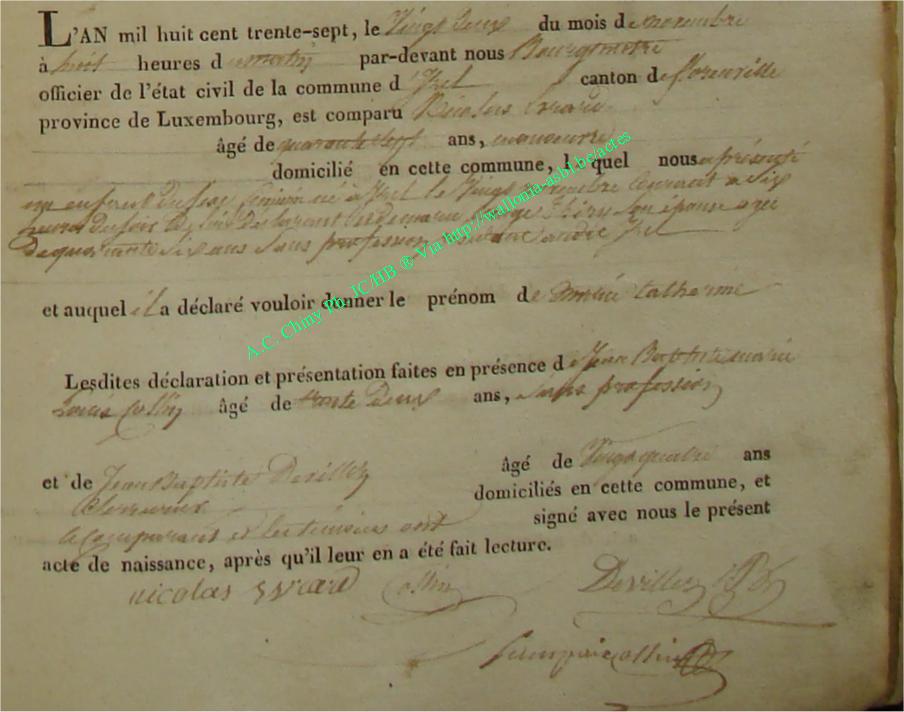 L'AN mil huit cent trente-sept, le Vingt deux du mois de novembre
à huit heures du matin par-devant nous Bourgmestre
officier de l'état civil de la commune d'Izel canton de florenville
province de Luxembourg, est comparu Nicolas
âgé de quarante sept ans, manoeuvre
domicilié en cette commune, lequel nous a présenté
un enfant du sexe féminin né à Izel le Vingt courant a six
heures du soir de lui déclarant et de marie son épouse agée
de quarante six ans Sans profession Izel
et auquel il a déclaré vouloir donner le prénom de marie Catherine
Lesdites déclaration et présentation faites en présence de Jean Baptiste marie
Louis Collin âgé de trente Deux ans, sans profession
et de Jean Baptiste Devillez âgé de Vingt quatre ans
domiciliés en cette commune, et
le Comparant et les témoins ont signé avec nous le présent
acte de naissance, après qu'il leur en a été fait lecture.
nicolas Collin Devillez JB
A.C. Chiny Ph. JC/HB ® Via http://wallonia-asbl.be/actes